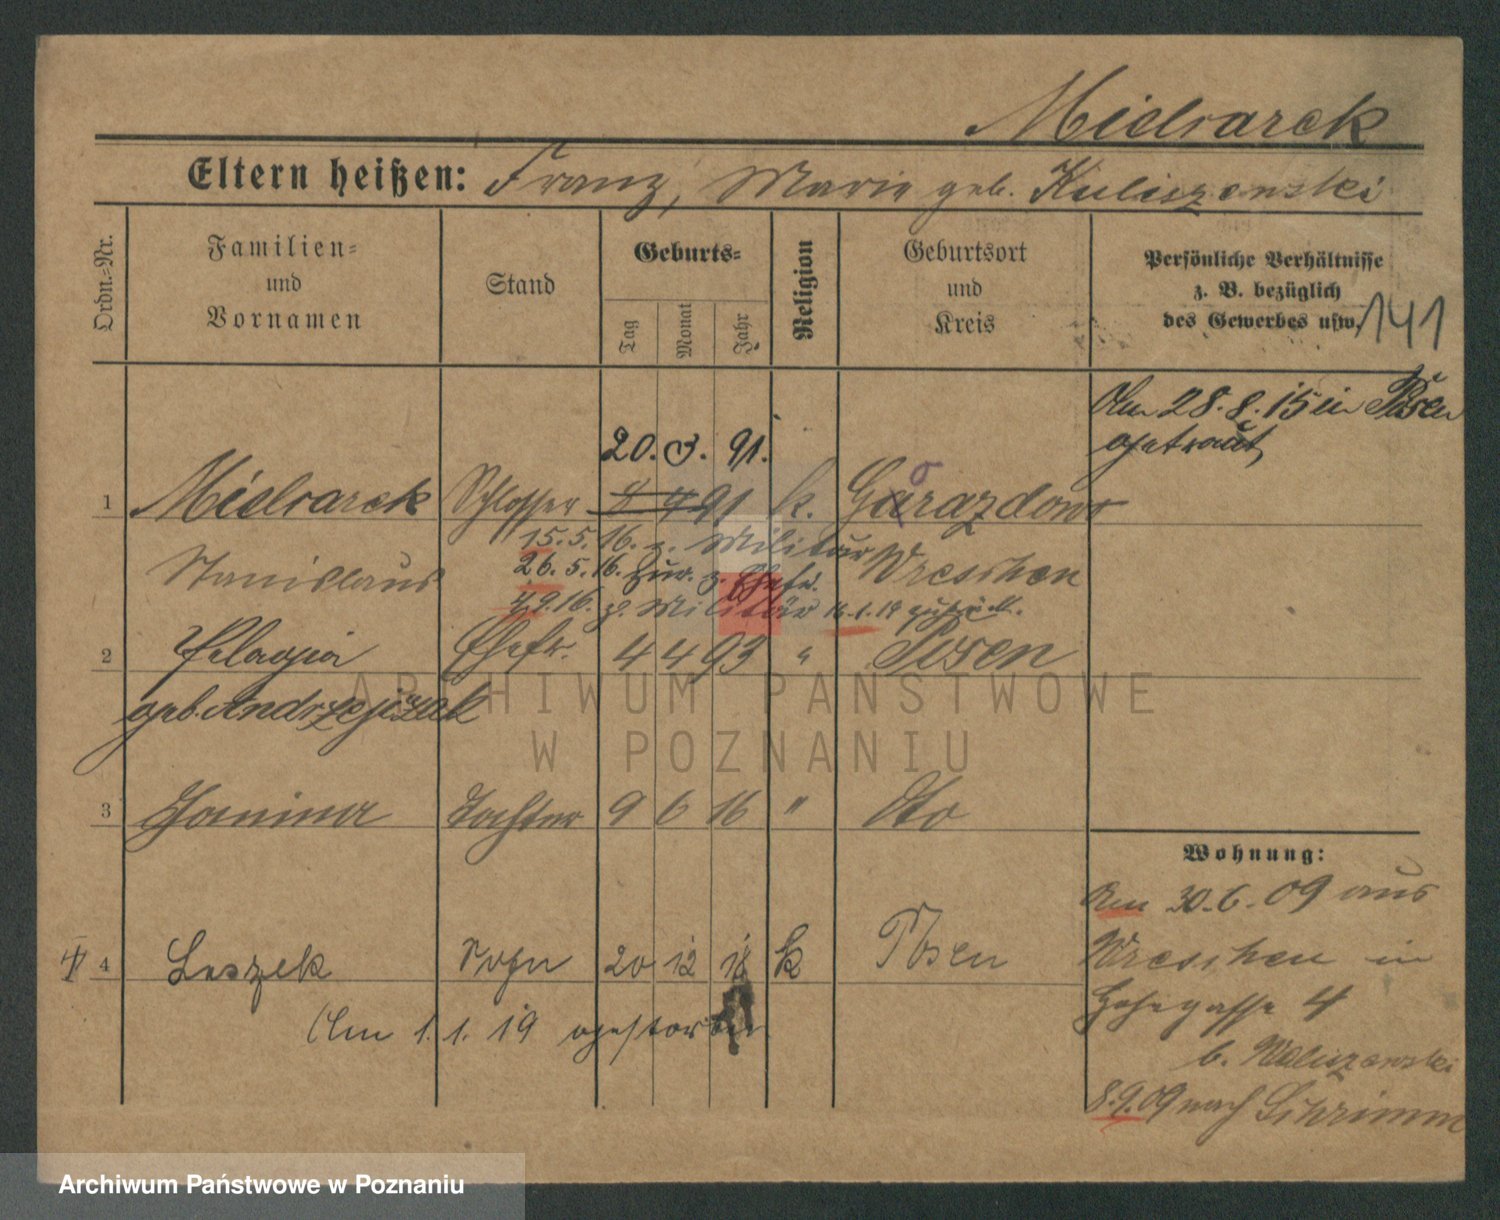 Mielcarek
Eltern heißen: Franz, Marie geb. Kuliszewski
Ordn.-Nr.
Familien-
und
Vornamen
Stand
Geburts-
Tag
Monat
Jahr
Religion
Geburtsort
und
Kreis
Persönliche Verhältnisse
z. B. bezüglich
des Gewerbes usw.
141
Am 28.8.15 in Posen
getraut
20. 3. 91.
1 Mielcarek Schlosser 8 4 91 k. Gorazdowo
15.5.16. z. Militär
Stanislaus Wreschen
26.5.16. zur. z. Ehefr.
4.9.16. z. Militär 16.1.19 zurück.
2 Pelagia Ehefr. 4 4 93 " Posen
geb. Andrzejczak
3 Janina Tochter 9 6 16 " dto
Wohnung:
Am 30.6.09 aus
Wreschen in
Hohegasse 4
b. Waliszewski
8.9.09 nach Schrimm
4 Leszek Sohn 20 12 18 k Posen
Am 1.1.19 gestorben
ARCHIWUM PAŃSTWOWE
W POZNANIU
Archiwum Państwowe w Poznaniu